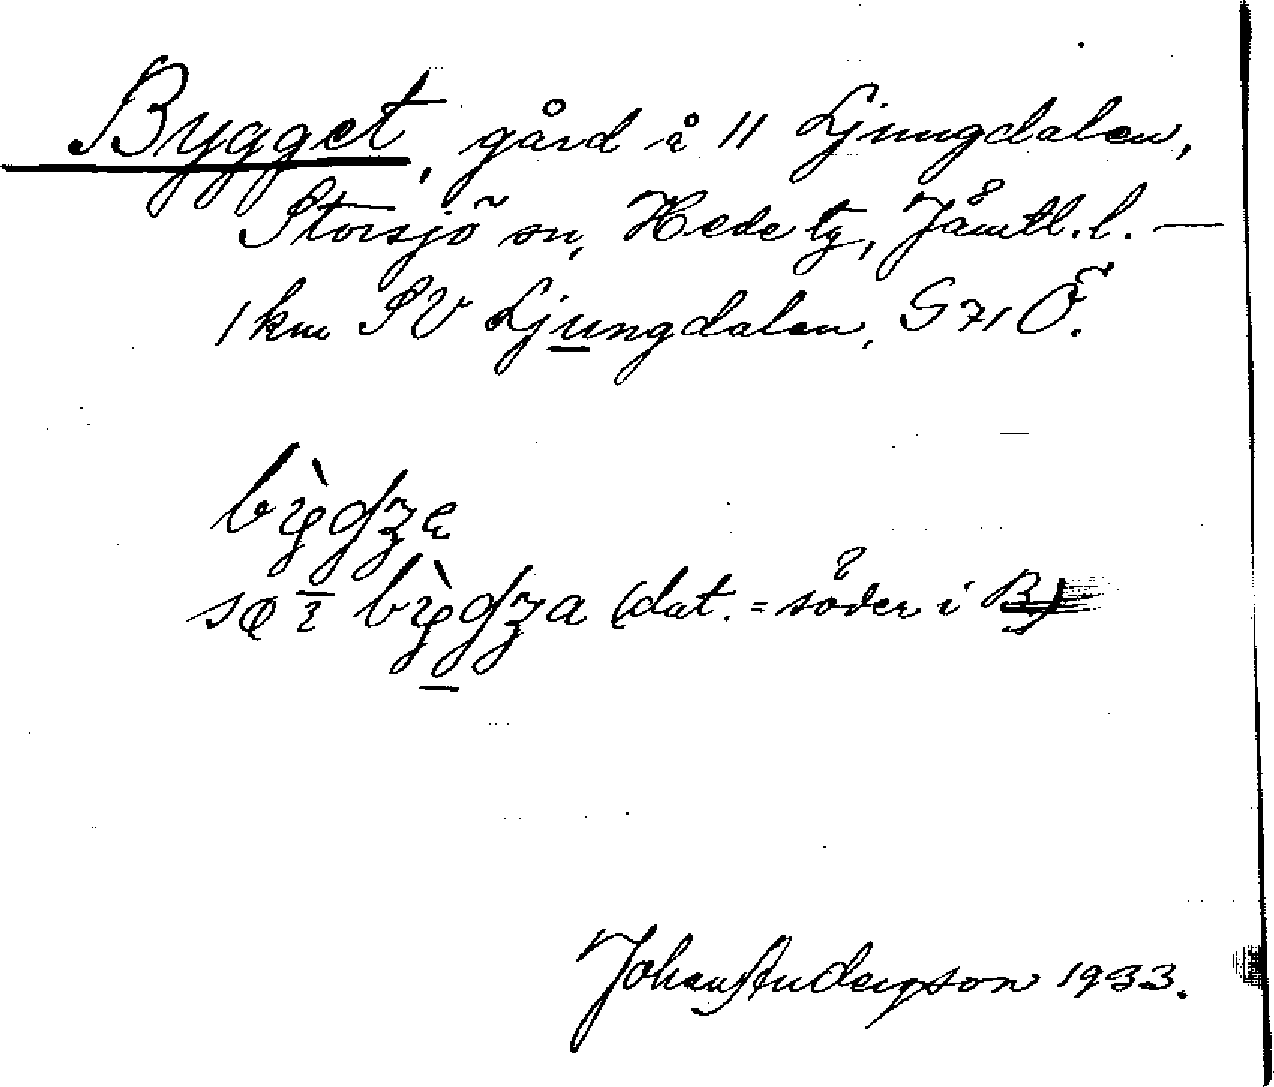 Bygget, gård å 11 Ljungdalen,
Storsjö sn, Hede tg, Jämtl. l. —
1 km SV Ljungdalen, G 71 Ö.
(dat. = söder i B)
Johan Anderson 1933.